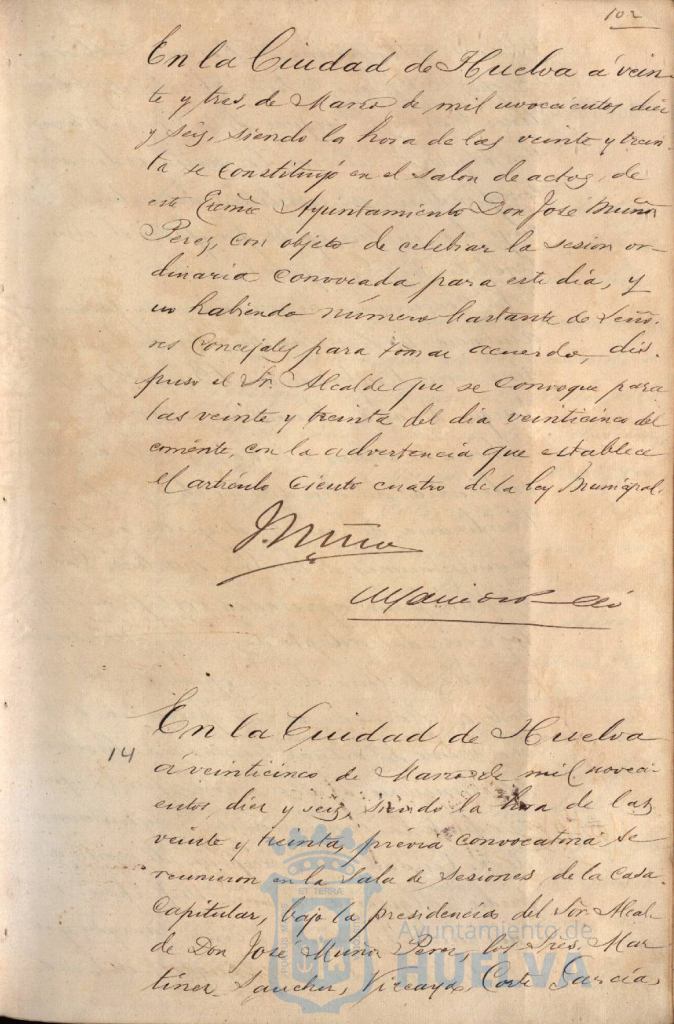 102
En la Ciudad de Huelva á vein-
te y tres, de Marzo de mil novecientos diez
y seis, siendo la hora de las veinte y trein-
ta se constituyó en el salon de actos, de
este Excmo Ayuntamiento Don José Muñoz
Perez, con objeto de celebrar la sesion or-
dinaria convocada para este dia, y
no habiendo número bastante de Seño-
res Concejales para tomar acuerdo, dis-
puso el Sr. Alcalde que se convoque para
las veinte y treinta del dia veinticinco del
corriente, con la advertencia que establece
el artículo ciento cuatro de la ley Municipal.
J. Muñoz
14
En la Ciudad de Huelva
á veinticinco de Marzo de mil noveci-
entos diez y seis, siendo la hora de las
veinte y treinta, prévia convocatoria se
reunieron en la Sala de Sesiones de la Casa
Capitular, bajo la presidencia del Sor. Alcal-
de Don José Muñoz Perez, los Sres. Mar-
tinez Sanchez, Vizcaya, Corte Garcia,
ET TERRÆ
Ayuntamiento de
HUELVA